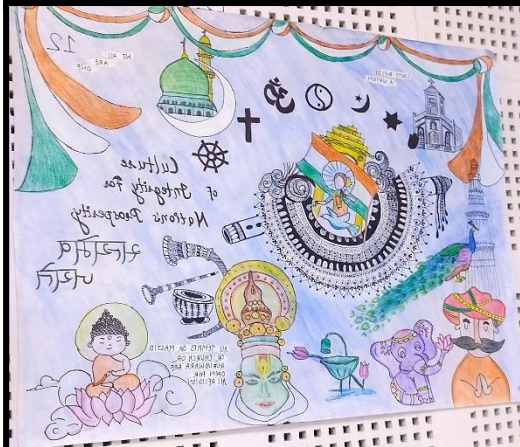 12
WE ALL
ARE
ONE
A NATION
Culture
of Integrity For
Nation's Prosperity
सत्यमेव
जयते
ALL TEMPLES OR MASJID
OR CHURCH OR
GURUDWARA ARE
FOR
ALL RELIGION